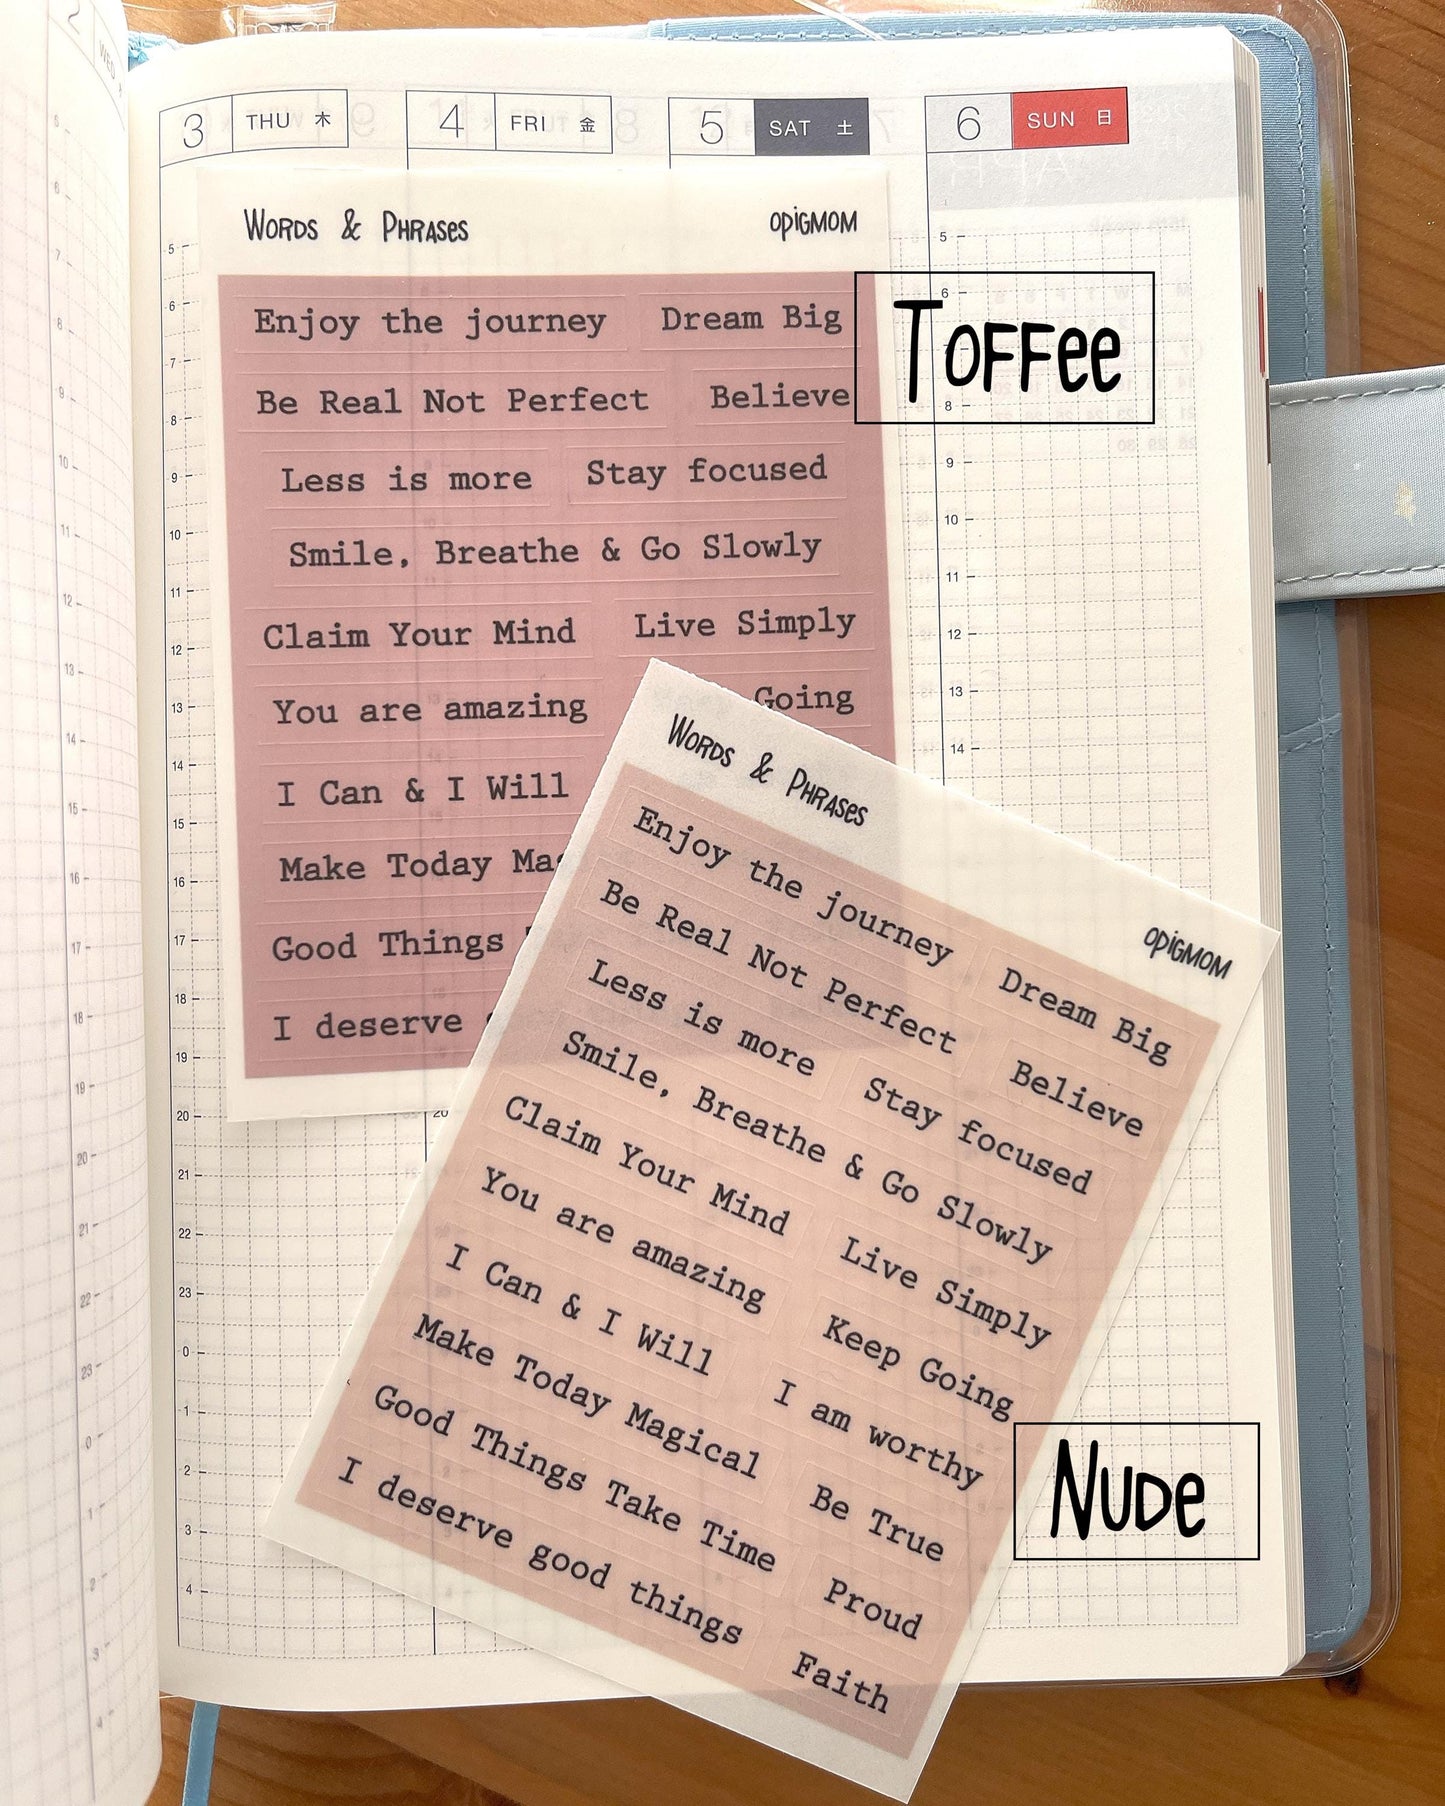 3 THU 木 4 FRI 金 5 SAT 土 6 SUN 日
WORDS & PHRASES OPIGMOM
Enjoy the journey Dream Big
Be Real Not Perfect Believe
Less is more Stay focused
Smile, Breathe & Go Slowly
Claim Your Mind Live Simply
You are amazing Going
I Can & I Will
Make Today
Good Things
I deserve
TOFFee
WORDS & PHRASES OPIGMOM
Enjoy the journey Dream Big
Be Real Not Perfect Believe
Less is more Stay focused
Smile, Breathe & Go Slowly
Claim Your Mind Live Simply
You are amazing Keep Going
I Can & I Will I am worthy
Make Today Magical Be True
Good Things Take Time Proud
I deserve good things Faith
NUDe
5
6
7
8
9
10
11
12
13
14
15
16
17
18
19
20
21
22
23
0
1
2
3
4
5
6
8
9
10
11
12
13
14
20